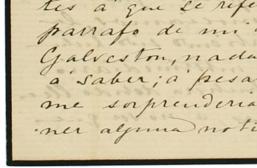 tes á que se refe
parrafo de mi
Galveston, nada
á saber; á pesa
me sorprenderia
ner alguna noti